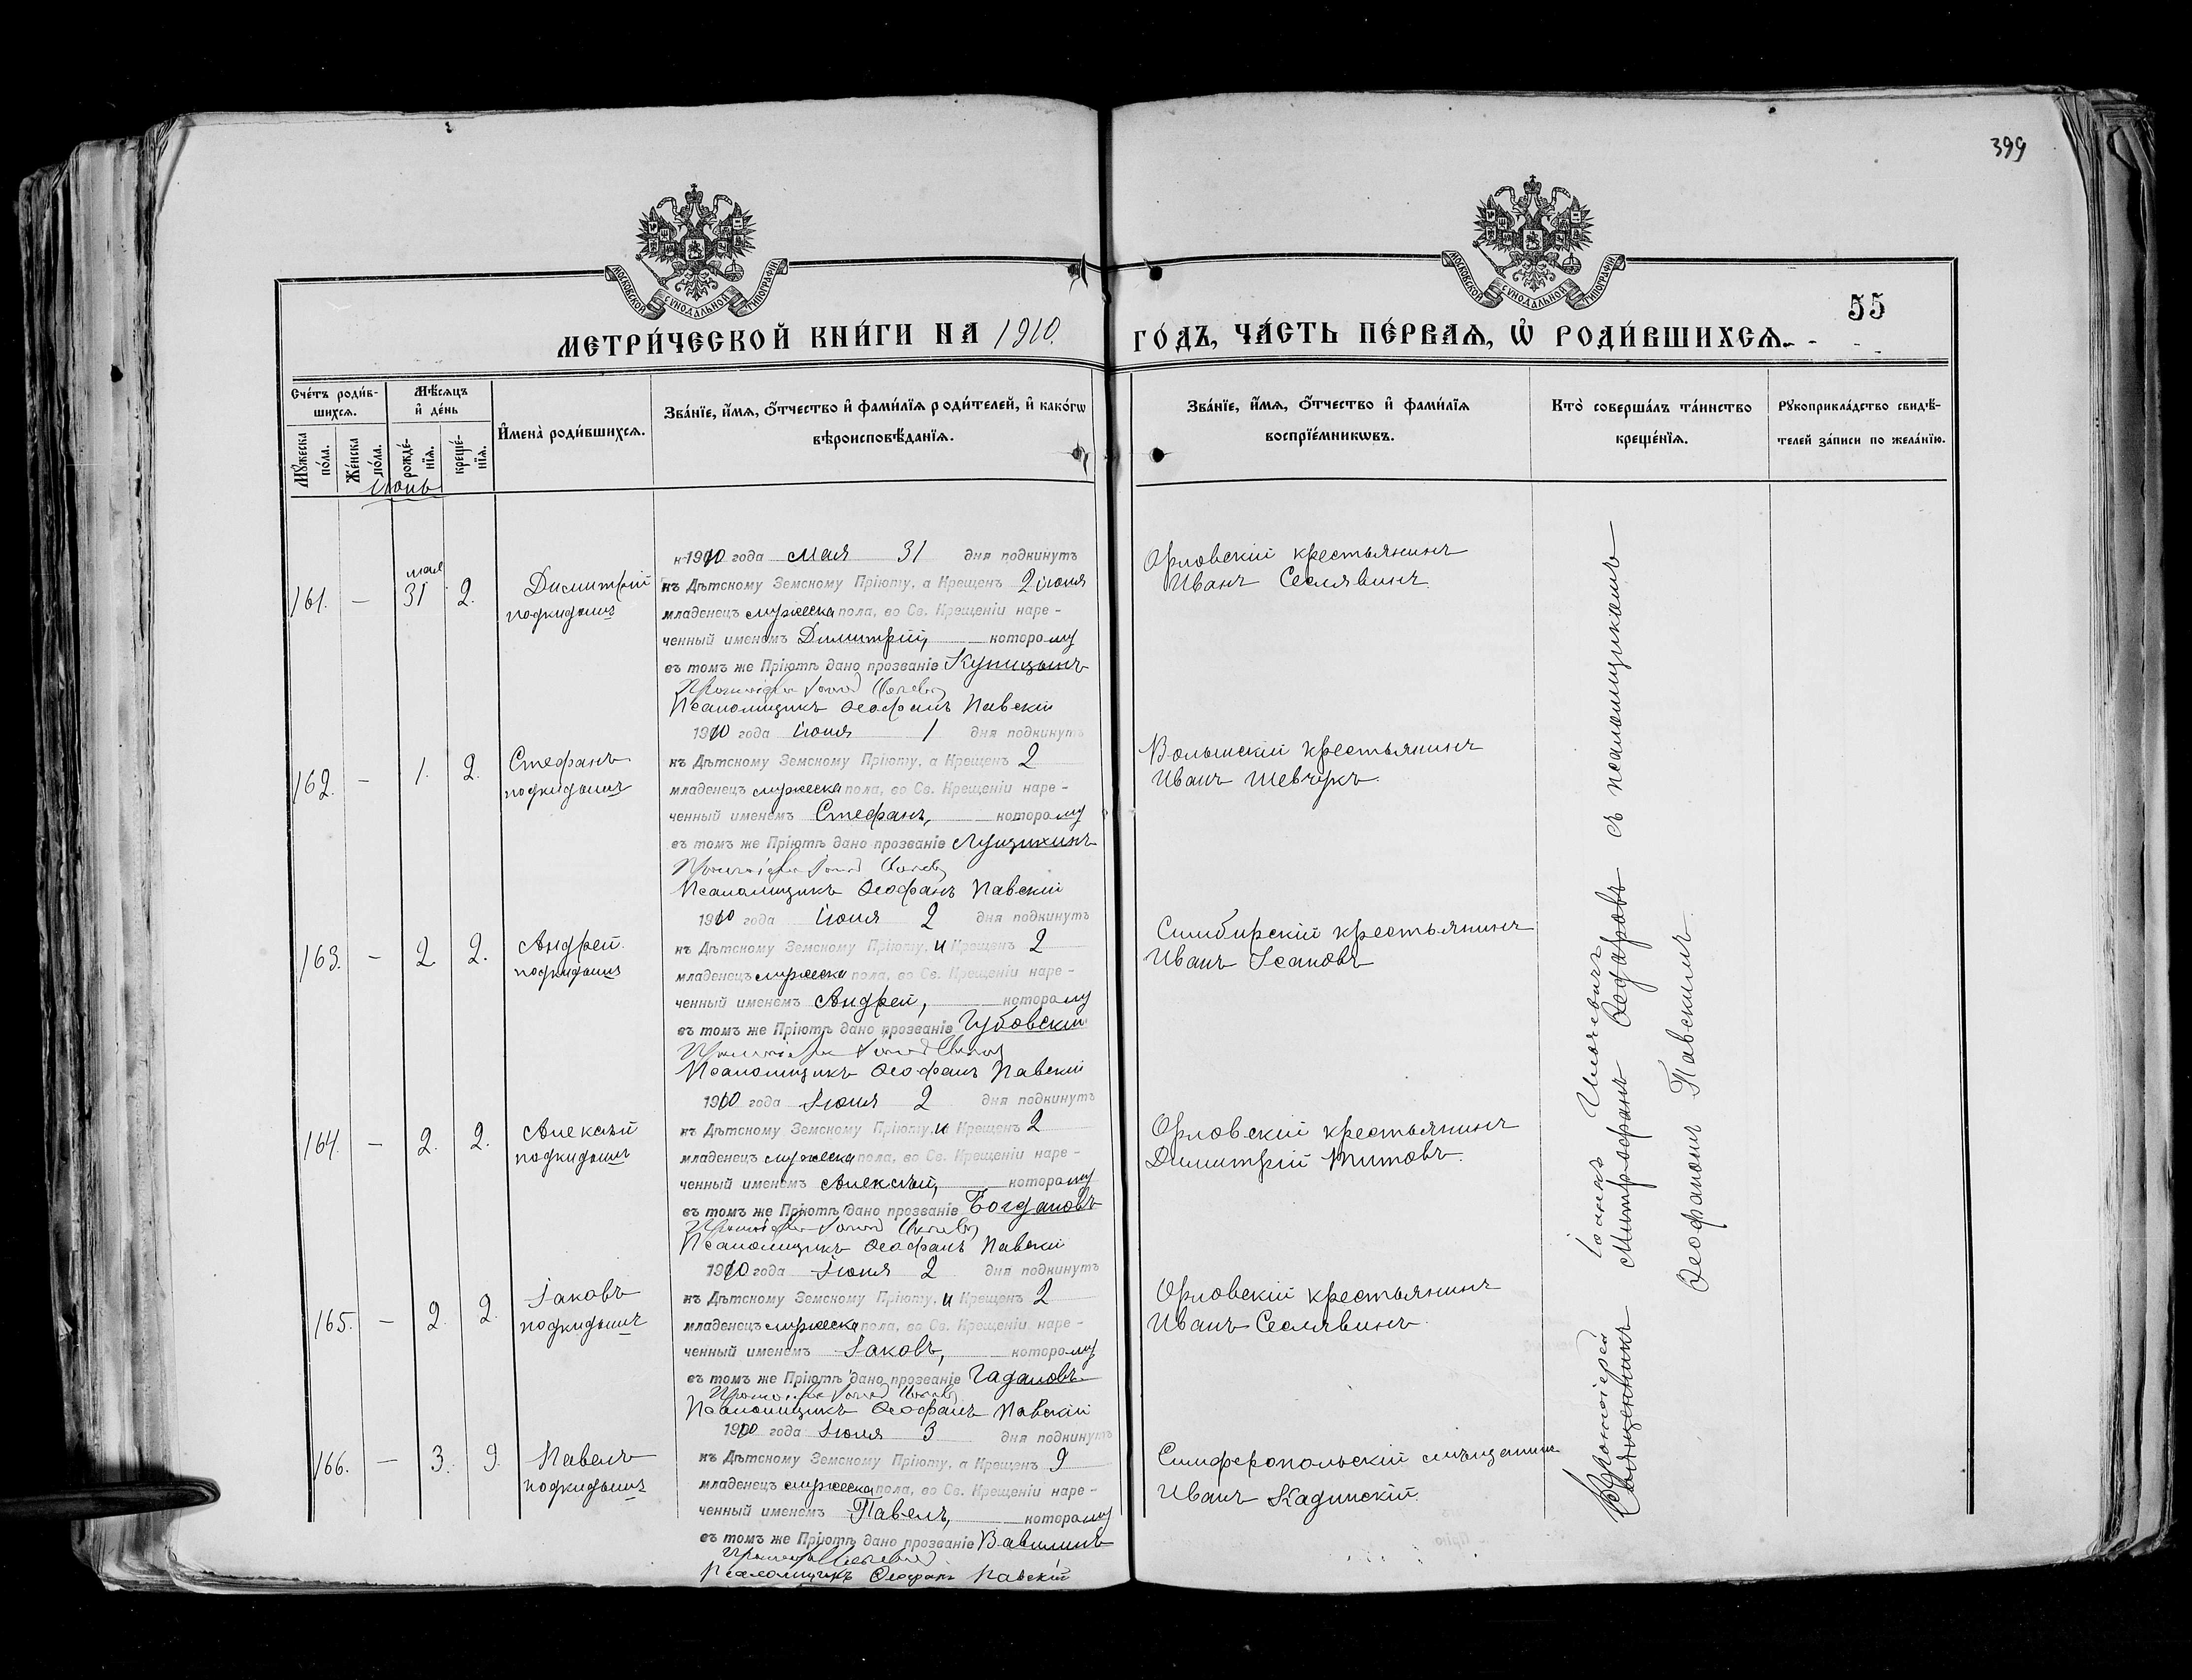 399
МОСКОВСКОЙ СѴНОДАЛЬНОЙ ТИПОГРАФІИ
МОСКОВСКОЙ СѴНОДАЛЬНОЙ ТИПОГРАФІИ
55
МЕТРИ́ЧЕСКОЙ КНИ́ГИ НА 1910. ГО́ДЪ, ЧА́СТЬ ПЕ́РВАѦ, Ѡ҆ РОДИ́ВШИХСѦ.
Сче́тъ роди́в-
шихсѧ.
Мꙋ́жеска по́ла.
Же́нска по́ла.
Мѣ́сѧцъ
и҆ де́нь
рожде́-
нїѧ.
креще́-
нїѧ.
И҆мена̀ роди́вшихсѧ.
Зва́нїе, и҆́мѧ, ѻ҆́тчество и҆ фами́лїѧ роди́телей, и҆ како́гѡ
вѣроисповѣ́данїѧ.
Зва́нїе, и҆́мѧ, ѻ҆́тчество и҆ фами́лїѧ
воспрїе́мникѡвъ.
Кто̀ соверша́лъ та́инство
креще́нїѧ.
Рꙋкоприкла́дство свидѣ́-
телей за́писи по жела́нїю.
Іюнь
161. — мая 31 2.
Димитрій
подкидышъ
1910 года мая 31 дня подкинутъ
къ Дѣтскому Земскому Пріюту, а Крещенъ 2 іюня
младенецъ мужеска пола, во Св. Крещеніи наре-
ченный именемъ Димитрій, которому
въ томъ же Пріютѣ дано прозваніе Купицынъ
Псаломщикъ Ѳеофанъ Павскій
Орловскій крестьянинъ
Иванъ Селявинъ.
162. — 1. 2.
Стефанъ
подкидышъ
1910 года іюня 1 дня подкинутъ
къ Дѣтскому Земскому Пріюту, а Крещенъ 2
младенецъ мужеска пола, во Св. Крещеніи наре-
ченный именемъ Стефанъ, которому
въ томъ же Пріютѣ дано прозваніе
Псаломщикъ Ѳеофанъ Павскій
Волынскій крестьянинъ
Иванъ Шевчукъ.
163. — 2 2.
Андрей.
подкидышъ
1910 года іюня 2 дня подкинутъ
къ Дѣтскому Земскому Пріюту, и Крещенъ 2
младенецъ мужеска пола, во Св. Крещеніи наре-
ченный именемъ Андрей, которому
въ томъ же Пріютѣ дано прозваніе Губовскій
Псаломщикъ Ѳеофанъ Павскій
Симбирскій крестьянинъ
Иванъ Ісаковъ
164. — 2. 2.
Алексѣй
подкидышъ
1910 года Іюня 2 дня подкинутъ
къ Дѣтскому Земскому Пріюту, и Крещенъ 2
младенецъ мужеска пола, во Св. Крещеніи наре-
ченный именемъ Алексѣй, которому
въ томъ же Пріютѣ дано прозваніе Богдановъ
Псаломщикъ Ѳеофанъ Павскій
Орловскій крестьянинъ
Димитрій Титовъ.
165. — 2. 2.
Іаковъ
подкидышъ
1910 года Іюня 2 дня подкинутъ
къ Дѣтскому Земскому Пріюту, и Крещенъ 2
младенецъ мужеска пола, во Св. Крещеніи наре-
ченный именемъ Іаковъ, которому
въ томъ же Пріютѣ дано прозваніе Гадаловъ.
Псаломщикъ Ѳеофанъ Павскій
Орловскій крестьянинъ
Иванъ Селявинъ.
166. — 3. 9.
Павелъ
подкидышъ
1910 года Іюня 3 дня подкинутъ
къ Дѣтскому Земскому Пріюту, а Крещенъ 9
младенецъ мужеска пола, во Св. Крещеніи наре-
ченный именемъ Павелъ, которому
въ томъ же Пріютѣ дано прозваніе Вавилинъ
Псаломщикъ Ѳеофанъ Павскій
Симферопольскій мѣщанинъ
Иванъ Кадинскій.
Протоіерей Іоаннъ
Священникъ Митрофанъ съ псаломщикомъ
Ѳеофаномъ Павскимъ.